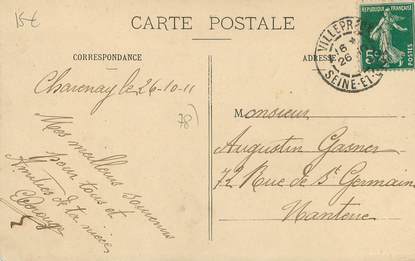 15€
CARTE POSTALE
CORRESPONDANCE
ADRESSE
VILLEPR
16
26
SEINE-ET-
REPUBLIQUE FRANÇAISE
5c
POSTES
Charenay le 26-10-11
78)
Mes meilleurs souvenirs
pour tous et
Amitiés de ta nièce
Monsieur
Augustin Gasner
72 Rue de St Germain
Nanterre